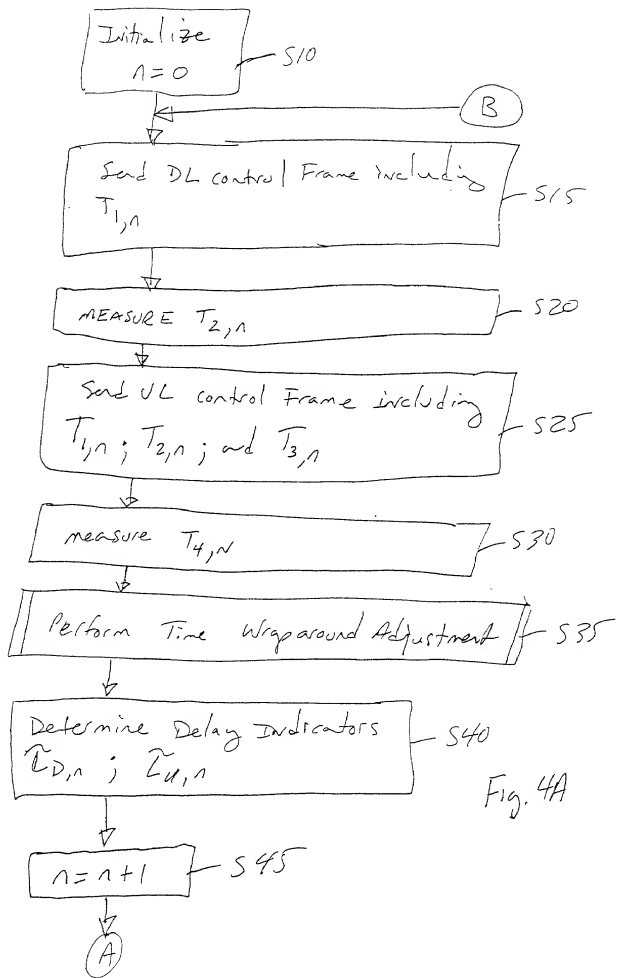 Initialize
n = 0
S10
B
Send DL control Frame including
T1,n
S15
MEASURE T2,n
S20
Send UL control Frame including
T1,n ; T2,n ; and T3,n
S25
measure T4,N
S30
Perform Time Wraparound Adjustment
S35
Determine Delay Indicators
τ̃D,n ; τ̃u,n
S40
Fig. 4A
n = n+1
S45
A